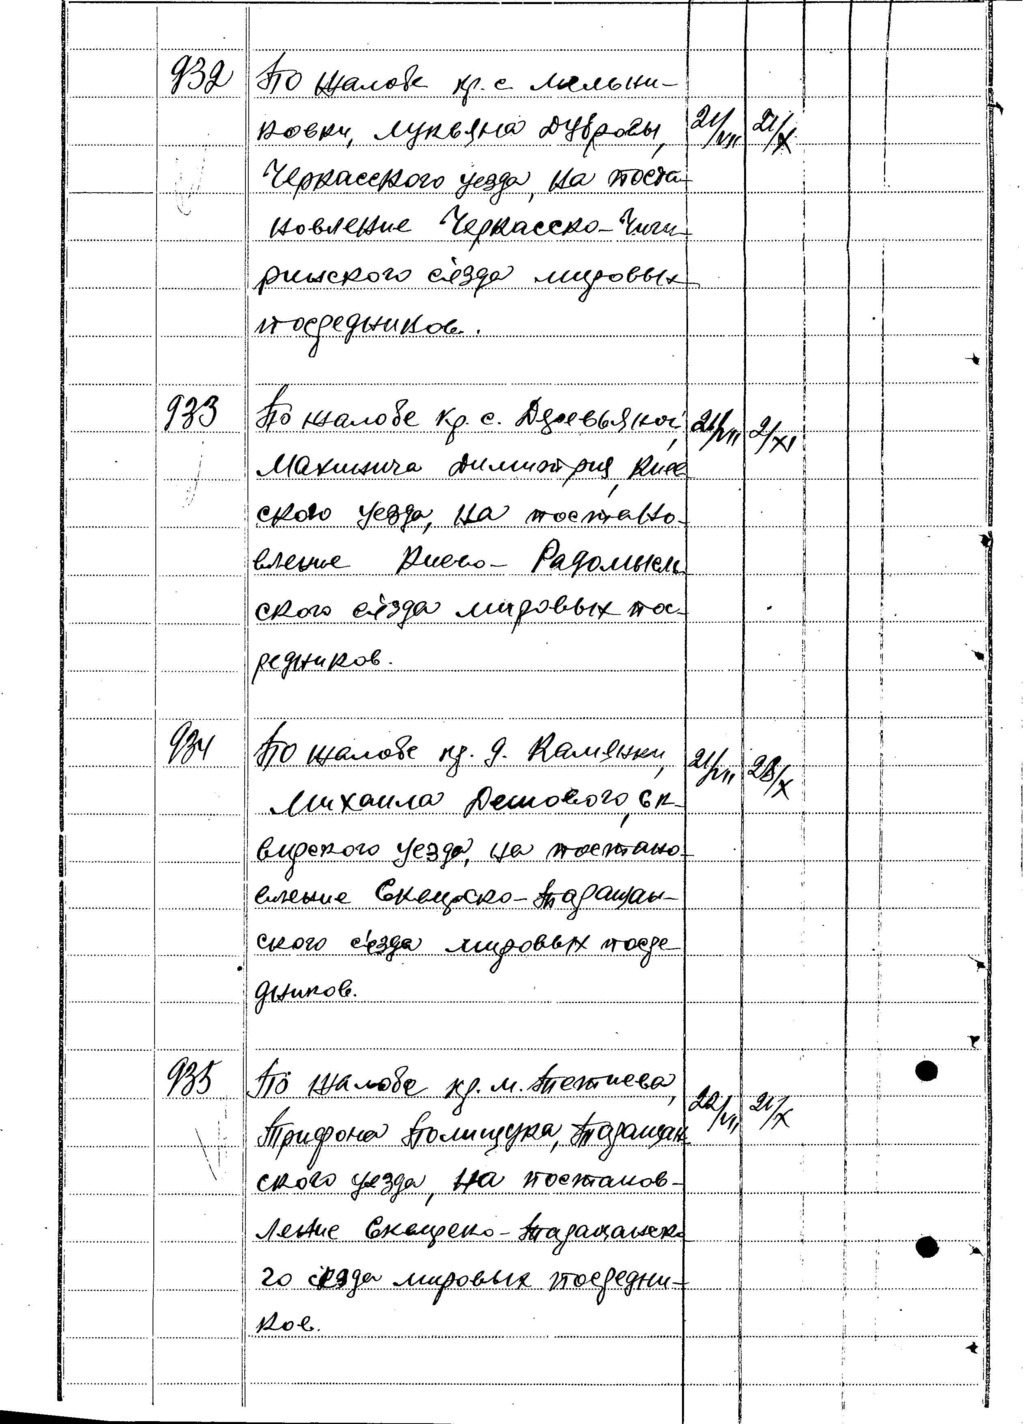 932 По жалобе кр. с. Мельни-
ковки, Лукьяна Дубровы, 21/VII 21/X
Черкасского уезда, на поста-
новление Черкасско-Чиги-
ринского съезда мировых
посредников.
933 По жалобе кр. с. Деревьяной, 21/VII 2/XI
Махинича Димитрия, Киев
ского уезда, на постано-
вление Киево-Радомысл
ского съезда мировых пос-
редников.
934 По жалобе кр. д. Камянки, 21/VII 28/X
Михаила Дешового, Ск-
вирского уезда, на постано-
вление Сквирско-Таращан-
ского съезда мировых посре-
дников.
935 По жалобе кр. м. Тетиева, 22/VII 21/X
Трифона Полищука, Таращан
ского уезда, на постанов-
ление Сквирско-Таращанско
го съезда мировых посредни-
ков.